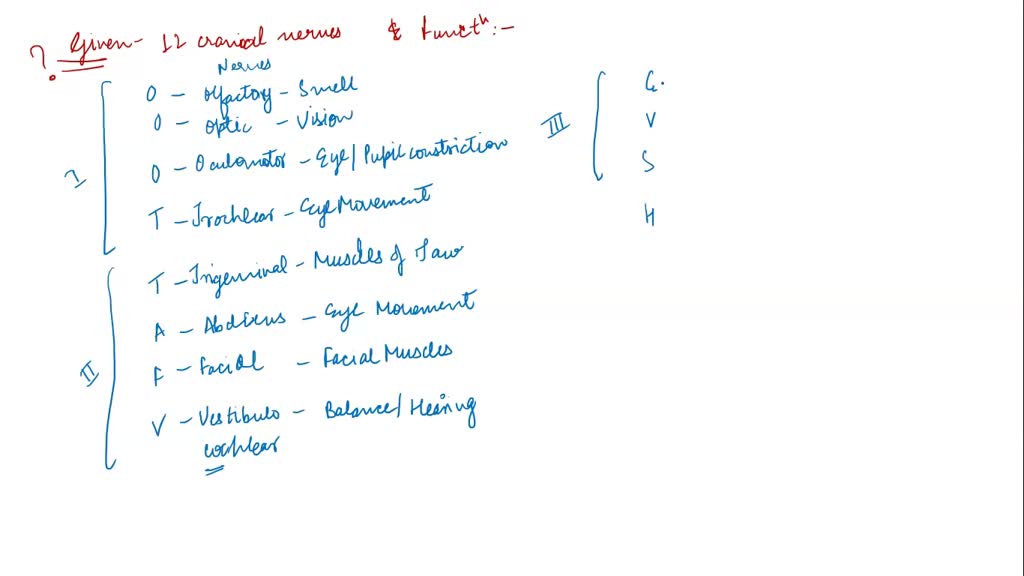 ? Given- 12 cranial nerves & Functh:-
Nerves
I
O - Olfactory - Smell
O - Optic - Vision
O - Oculomotor - Eye/Pupil constriction
T - Trochlear - Eye Movement
II
T - Trigeminal - Muscles of Jaw
A - Abducens - Eye Movement
F - Facial - Facial Muscles
V - Vestibulo - Balance/Hearing
cochlear
III
G.
V
S
H